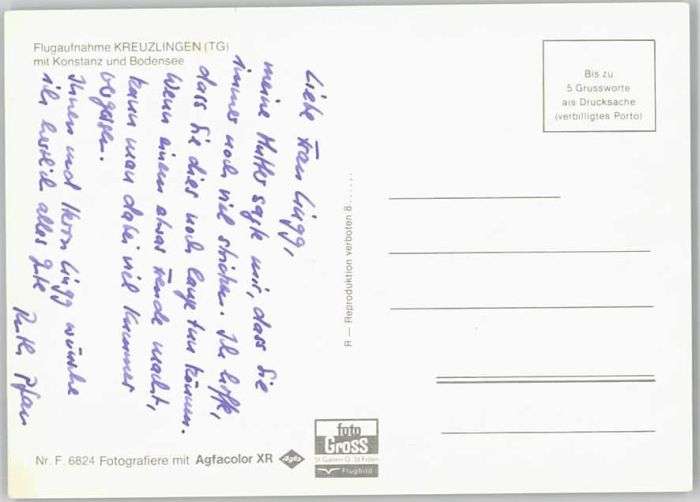 Flugaufnahme KREUZLINGEN (TG)
mit Konstanz und Bodensee
Liebe Frau Lingg,
meine Mutter sagte mir, dass Sie
immer noch viel stricken. Ich hoffe,
dass Sie dies noch lange tun können.
Wenn einem etwas Freude macht,
kann man dabei viel Kummer
vergessen.
Ihnen und Herrn Lingg wünsche
ich herzlich alles Gute
Ruth Pfau
Bis zu
5 Grussworte
als Drucksache
(verbilligtes Porto)
R — Reproduktion verboten 8......
Nr. F. 6824 Fotografiere mit Agfacolor XR
Agfa
foto
Gross
St. Gallen
Flugbild